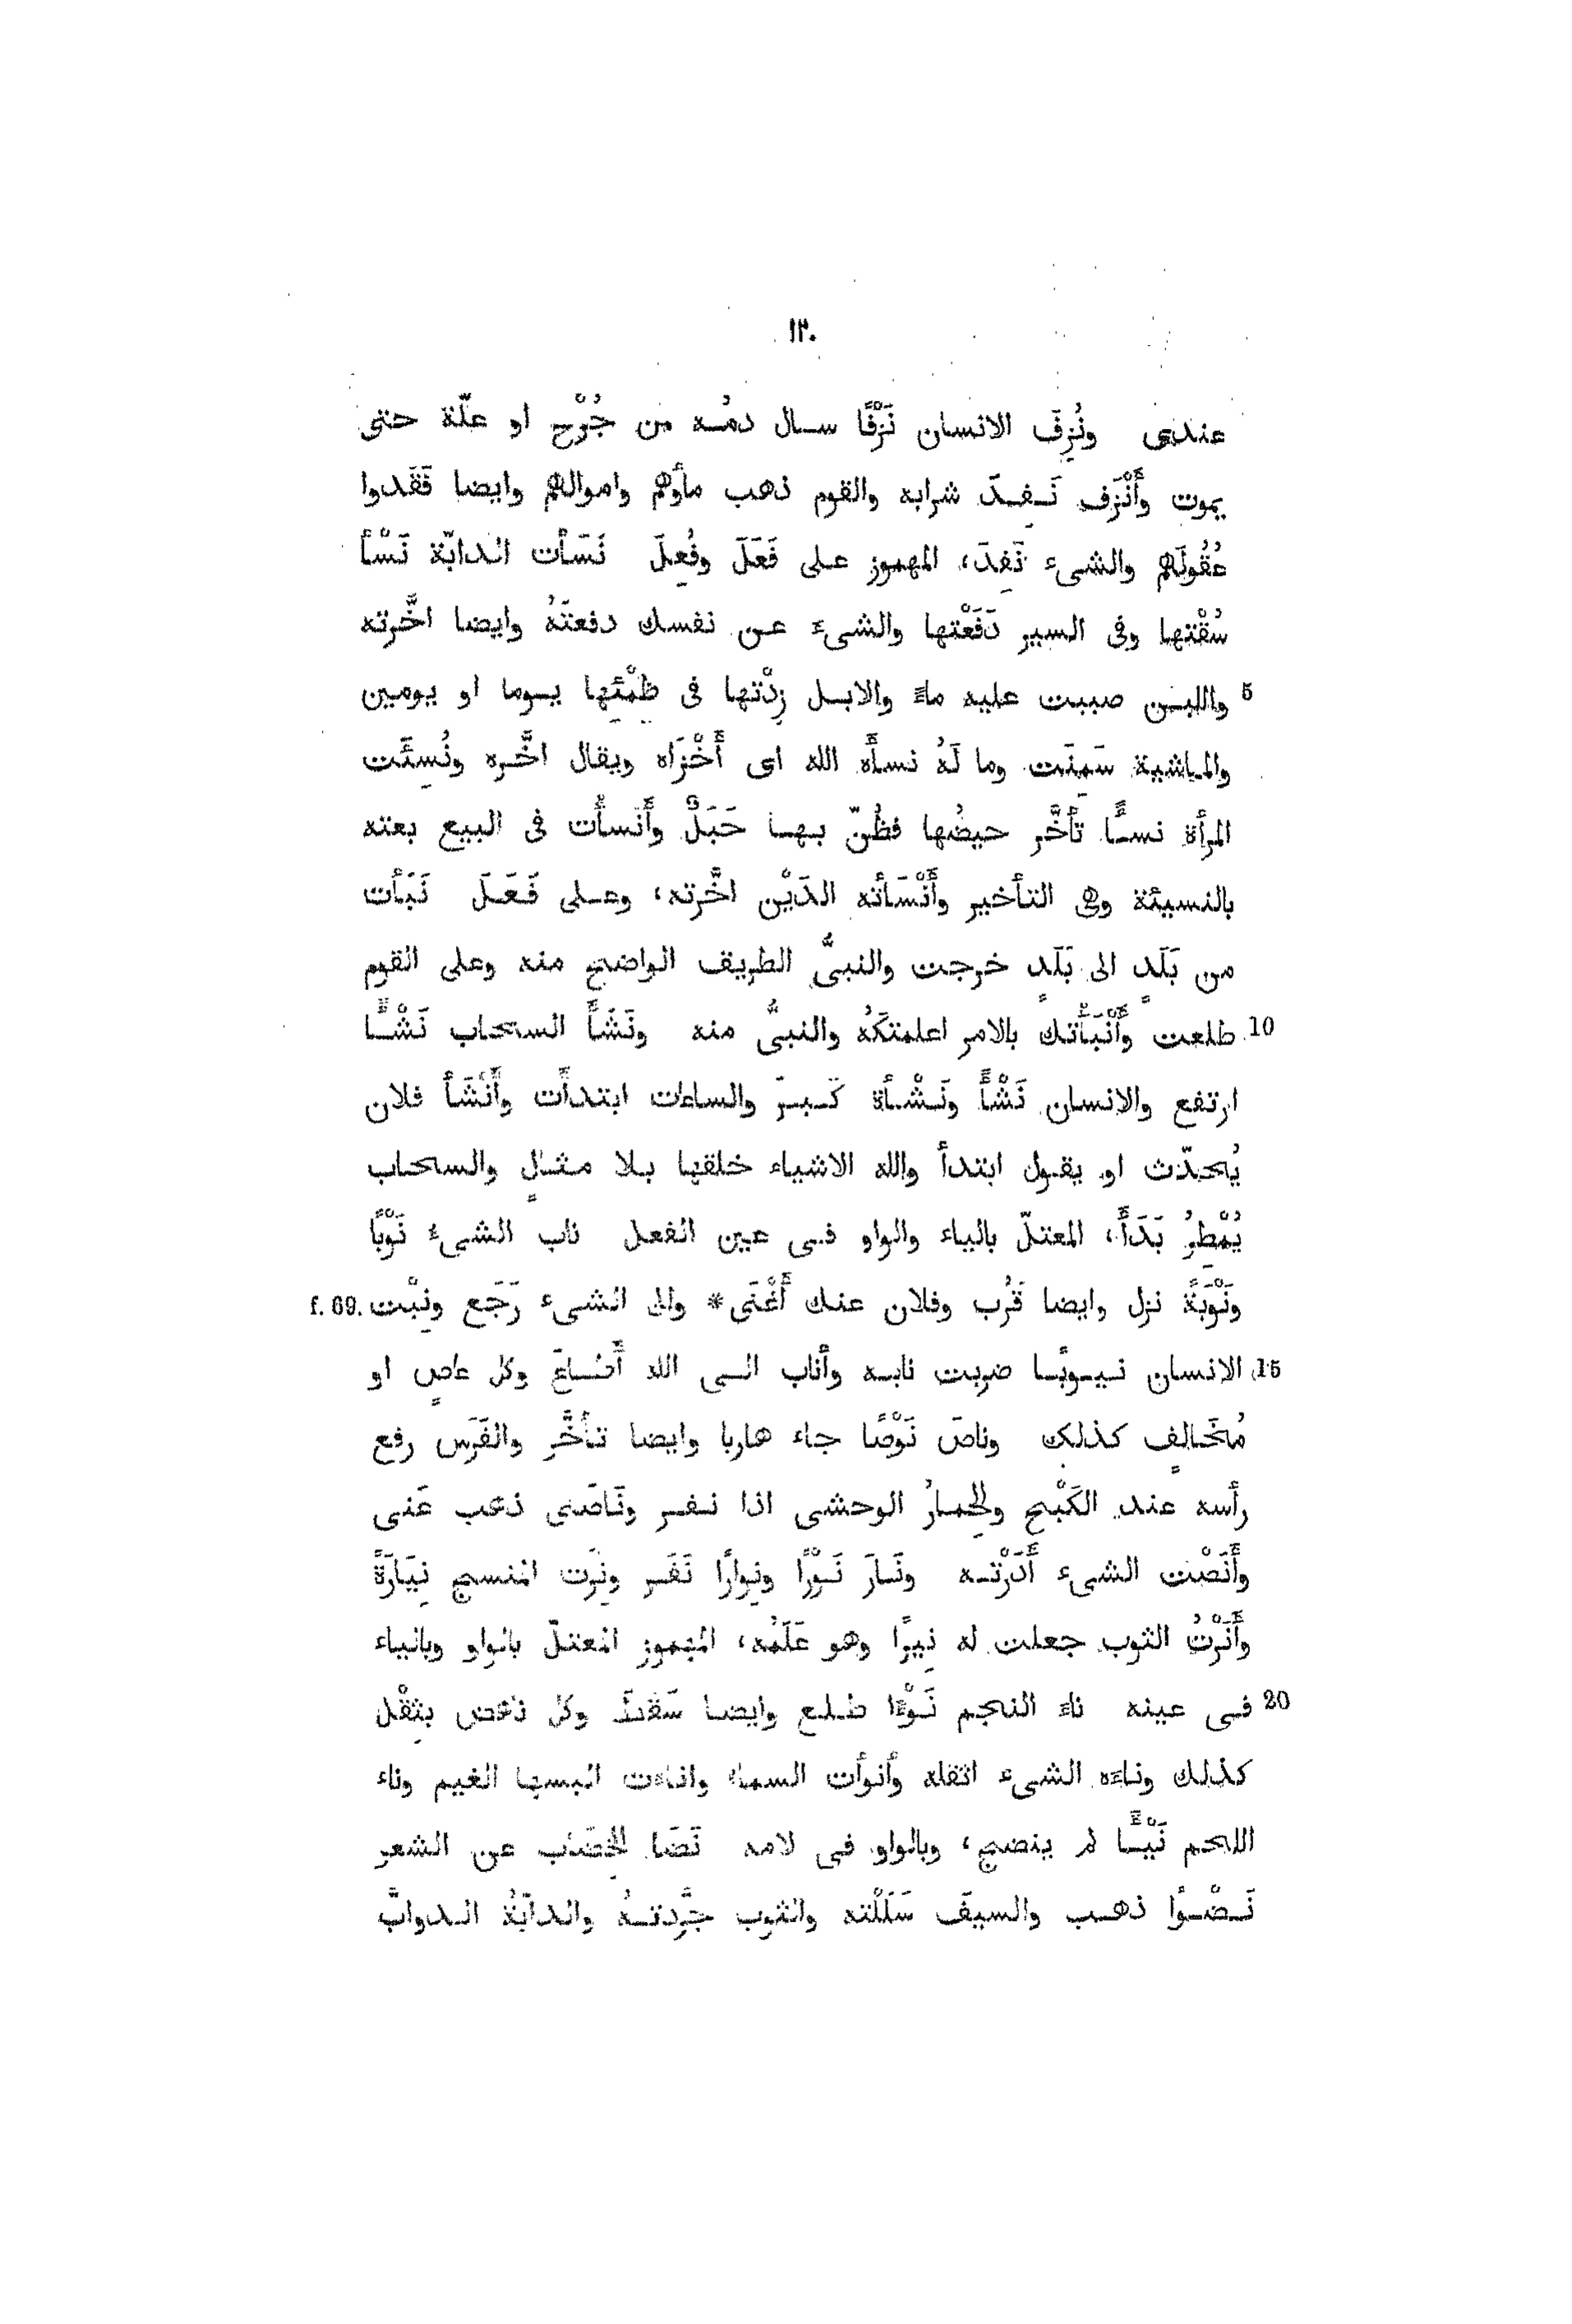 ١٣٠
عندى ونُزِفَ الانسان نَزْفًا سال دمُه من جُرْح او علّة حتى
يموت وأَنْزَف نَفِدَ شرابه والقوم ذهب ماؤهم واموالهم وايضا فَقَدوا
عُقُولَهم والشىء نَفِدَ، المهموز على فَعَلَ وفُعِلَ نَسَأت الدابّة نَسْأ
سُقْتها وفى السير دَفَعْتها والشىءَ عن نفسك دفعتَهُ وايضا اخَّرته
5 واللبن صببت عليه ماءً والابل زِدْتها فى ظِمْئها يوما او يومين
والماشية سَمِنَت وما لَهُ نسأَه الله اى أَخْزَاه ويقال اخَّره ونُسِئَت
المرأة نسـًٔا تأخَّر حيضُها فظُنّ بها حَبَلٌ وأَنسأْت فى البيع بعته
بالنسيئة وهى التأخير وأَنْسَأته الدَيْن اخَّرته، وعلى فَعَلَ نَبَأت
من بَلَدٍ الى بَلَدٍ خرجت والنبىُّ الطريق الواضح منه وعلى القوم
10 طلعت وأَنْبَأْتك بالامر اعلمتكَهُ والنبىُّ منه ونَشَأَ السحاب نَشْـًٔا
ارتفع والانسان نَشْأً ونَشْأة كَبِرَ والساعات ابتدأَت وأَنْشَأ فلان
يُحدّث او يقول ابتدأ والله الاشياء خلقها بلا مثالٍ والسحاب
يُمْطِرُ بَدَأَ، المعتلّ بالياء والواو فى عين الفعل ناب الشىءُ نَوْبًا
ونَوْبَةً نزل وايضا قَرُب وفلان عنك أَغْنَى* والى الشىء رَجَع ونِبْت f. 69.
15 الانسان نيوبًا ضربت نابه وأناب الى الله أَطاعَ وكل عاصٍ او
مُخَالِفٍ كذلك وناصَ نَوْصًا جاء هاربا وايضا تأخَّر والفَرَس رفع
رأسه عند الكَبْح والحِمارُ الوحشى اذا نفر ونَاصَنى ذهب عَنى
وأَنَصْت الشىء أَدَرْته ونَارَ نَوْرًا ونِوارًا نَفَر ونِرَت المنسج نِيَارَةً
وأَنَرْتُ الثوب جعلت له نِيرًا وهو عَلَمُه، المهموز المعتلّ بالواو وبالياء
20 فى عينه ناءَ النجم نَوْءًا طلع وايضا سَقَطَ وكل ناهض بثِقْل
كذلك وناءَه الشىء اثقله وأنوأَت السماءُ واناءت البسها الغيم وناء
اللحم نَيْـًٔا لم ينضج، وبالواو فى لامه نَضَا الخِضَاب عن الشعر
نَضْوًا ذهب والسيفَ سَلَلْته والثوب جرَّدتهُ والدابّةُ الدوابَّ